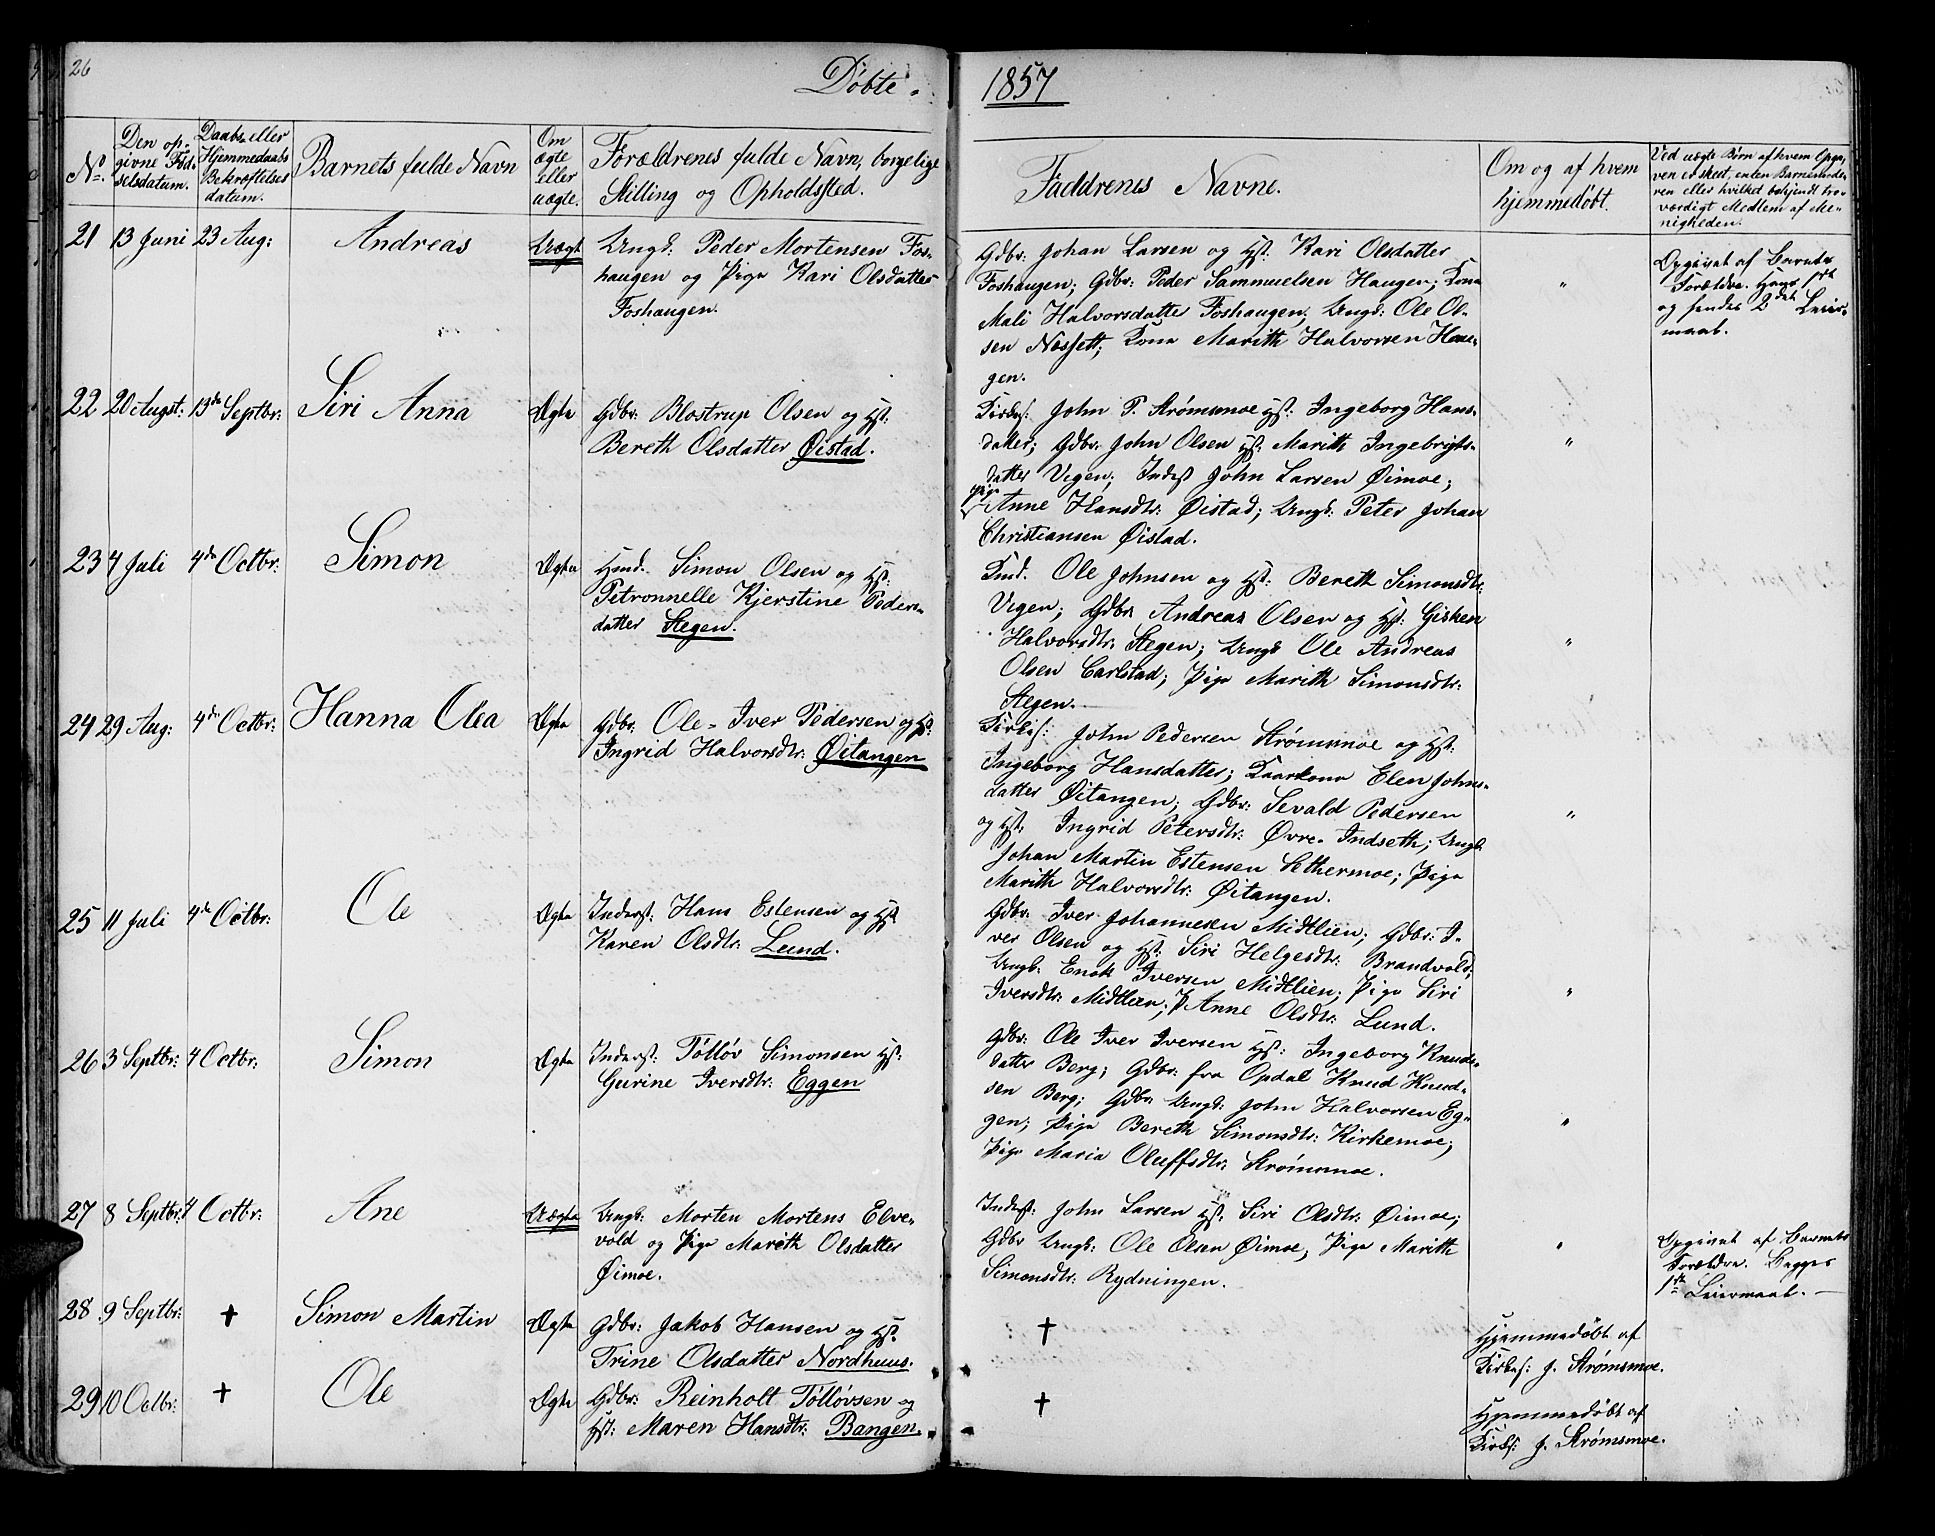 26
Döbte.
1857
No.
Den op-
givne Föd-
selsdatum.
Daabs eller
Hjemmedaabs
Bekræftelses
datum.
Barnets fulde Navn
Om
ægte
eller
uægte.
Forældrenes fulde Navn, borgelige
Stilling og Opholdssted.
Faddrenes Navne.
Om og af hvem
hjemmedöbt.
Ved uægte Börn af hvem Opgi-
ven er skeet, enten Barnemode-
ren eller hvilket bekjendt tro-
værdigt Medlem af Me-
nigheden.
21 13 Juni 23 Aug: Andreas Uægte
Ungk: Peder Mortensen Fos-
haugen og Pige Kari Olsdatter
Foshaugen.
Gdbr: Johan Larsen og Hst: Kari Olsdatter
Foshaugen; Gdbr: Peder Sammuelsen Haugen; Kona
Mali Halvorsdatter Foshaugen; Ungk: Ole Ol-
sen Næssett; Kona Marith Halvorsen Hau-
gen.
"
Opgivet af Barnets
Forældre. Hans 1ste
og hendes 2det Leier-
maal.
22 20 Augst: 13de Septbr: Siri Anna Ægte
Gdbr: Blostrup Olsen og Hst:
Bereth Olsdatter Øistad.
Kirkes: John P. Strömsmoe Hst: Ingeborg Hans-
datter; Gdbr: John Olsen Hst: Marith Ingebrigts-
datter Vegen; Inderst John Larsen Øimoe;
Pige
Anne Hansdtr: Øistad; Ungk: Peter Johan
Christiansen Øistad.
"
23 4 Juli 4de Octbr: Simon Ægte
Husmd. Simon Olsen og Hst:
Petronnelle Kjerstine Peders-
datter Stegen.
Husmd. Ole Johnsen og Hst: Bereth Simonsdtr:
Vegen; Gdbr: Andreas Olsen og Hst: Gisken
Halvorsdtr: Stegen; Ungk Ole Andreas
Olsen Carlstad; Pige Marith Simonsdtr:
Stegen.
"
24 29 Aug: 4de Octbr: Hanna Olea Ægte
Gdbr: Ole-Iver Pedersen og Hst:
Ingrid Halvorsdtr: Øitangen
Kirkes: John Pedersen Strömsmoe og Hst:
Ingeborg Hansdatter; Kaarkone Elen Johns-
datter Øitangen; Gdbr: Sevald Pedersen
og Hst: Ingrid Petersdtr: Øvre-Indseth; Ungk:
Johan Martin Estensen Sethermoe; Pige
Marith Halvorsdtr: Øitangen.
"
25 11 Juli 4de Octbr: Ole Ægte
Inderst: Hans Estensen og Hst
Karen Olsdtr: Lund.
Gdbr: Iver Johannesen Midtlien; Gdbr: I-
ver Olsen og Hst: Siri Helgesdtr: Brandvold;
Ungk: Enok Iversen Midtlien; Pige Siri
Iversdtr: Midtlien; P. Anne Olsdtr: Lund.
"
26 3 Septbr: 4 Octbr: Simon Ægte
Inderst: Töllöv Simonsen Hst:
Gurine Iversdtr: Eggen
Gdbr: Ole Iver Iversen Hst: Ingeborg Knuds-
datter Berg; Gdbr: fra Opdal Knud Knud-
sen Berg; Gdbr: Ungk: John Halvorsen Eg-
gen; Pige Bereth Simonsdtr: Kirkemoe;
Pige Maria Oluffsdtr: Strömsmoe.
"
27 8 Septbr: 4 Octbr: Ane Uægte
Ungk: Morten Mortens Elve-
vold og Pige Marith Olsdatter
Øimoe.
Inderst: John Larsen Hst: Siri Olsdtr: Øimoe;
Gdbr Ungk: Ole Olsen Øimoe; Pige Marith
Simonsdtr: Rydningen.
"
Opgivet af Barnets
Forældre. Begges
1ste Leiermaal.
28 9 Septbr: † Simon Martin Ægte
Gdbr: Jakob Hansen og Hst.
Trine Olsdatter Nordhuus.
†
Hjemmedöbt af
Kirkes: J. Strömsmoe.
29 10 Octbr: † Ole Ægte
Gdbr: Reinholt Töllövsen og
Hst: Maren Hansdtr: Bangen.
†
Hjemmedöbt af
Kirkes: J. Strömsmoe.